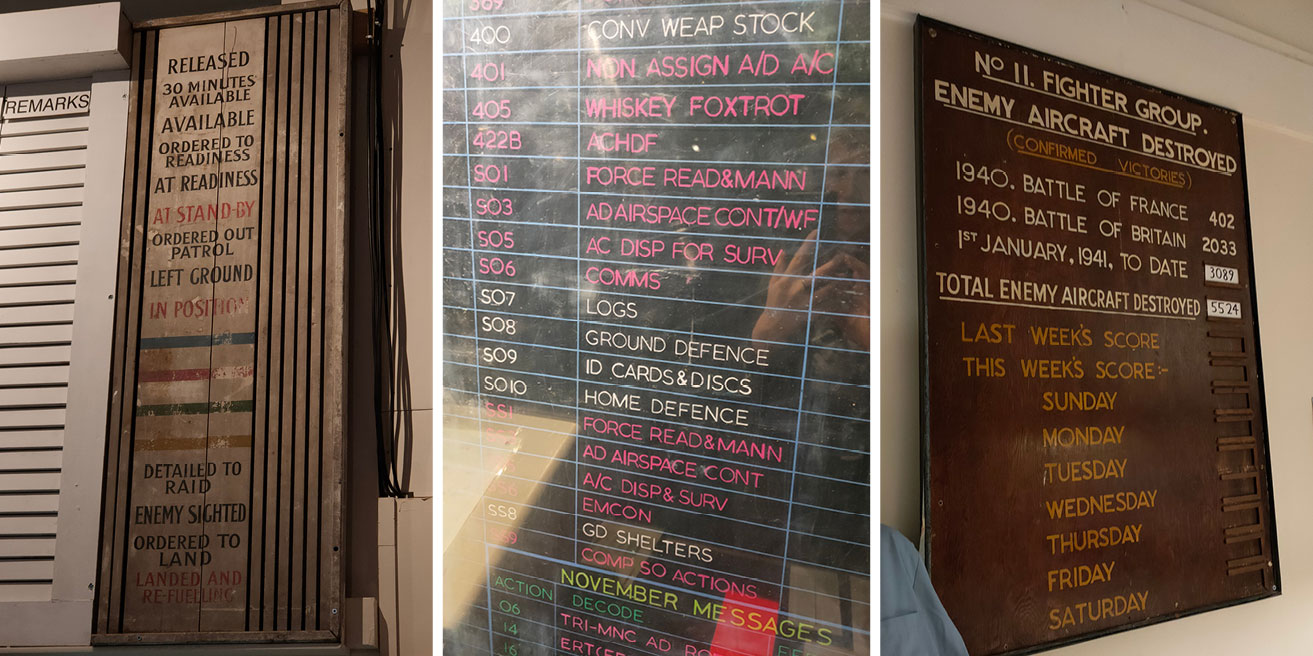 REMARKS
RELEASED
30 MINUTES
AVAILABLE
AVAILABLE
ORDERED TO
READINESS
AT READINESS
AT STAND-BY
ORDERED OUT
PATROL
LEFT GROUND
IN POSITION
DETAILED TO
RAID
ENEMY SIGHTED
ORDERED TO
LAND
LANDED AND
RE-FUELLING
400 CONV WEAP STOCK
401 NON ASSIGN A/D A/C
405 WHISKEY FOXTROT
422B ACHDF
SO1 FORCE READ&MANN
SO3 AD AIRSPACE CONT/WF
SO5 AC DISP FOR SURV
SO6 COMMS
SO7 LOGS
SO8 GROUND DEFENCE
SO9 ID CARDS&DISCS
SO10 HOME DEFENCE
SS1 FORCE READ&MANN
AD AIRSPACE CONT
A/C DISP&SURV
EMCON
SS8 GD SHELTERS
SS9 COMP SO ACTIONS
NOVEMBER MESSAGES
ACTION DECODE
06 TRI-MNC AD
14
16
No 11. FIGHTER GROUP.
ENEMY AIRCRAFT DESTROYED
(CONFIRMED VICTORIES)
1940. BATTLE OF FRANCE 402
1940. BATTLE OF BRITAIN 2033
1ST JANUARY, 1941, TO DATE 3089
TOTAL ENEMY AIRCRAFT DESTROYED 5524
LAST WEEK'S SCORE
THIS WEEK'S SCORE:-
SUNDAY
MONDAY
TUESDAY
WEDNESDAY
THURSDAY
FRIDAY
SATURDAY